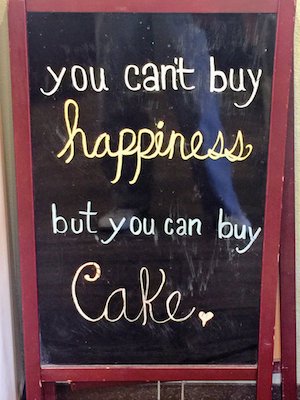 you can't buy
happiness
but you can buy
Cake.